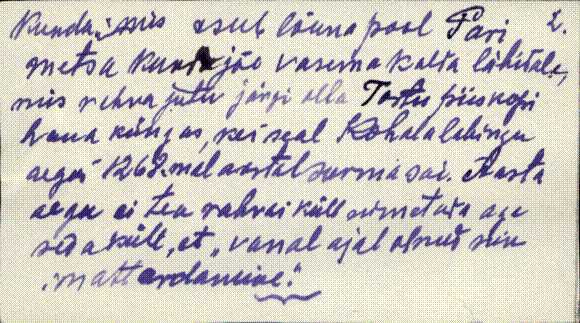 Kunda, mis asub lõuna pool Pari 2.
metsa Kunda jõe vasema kalda lähidale,
mis rahva jutu järgi olla Tartu piiskopi
haua küngas, kes seal Kohala lahingu
aegu 1268. mal aastal surma sai. Aasta
aegu ei tea rahvas küll nimetada aga
seda küll, et „vanal ajal olnud siin